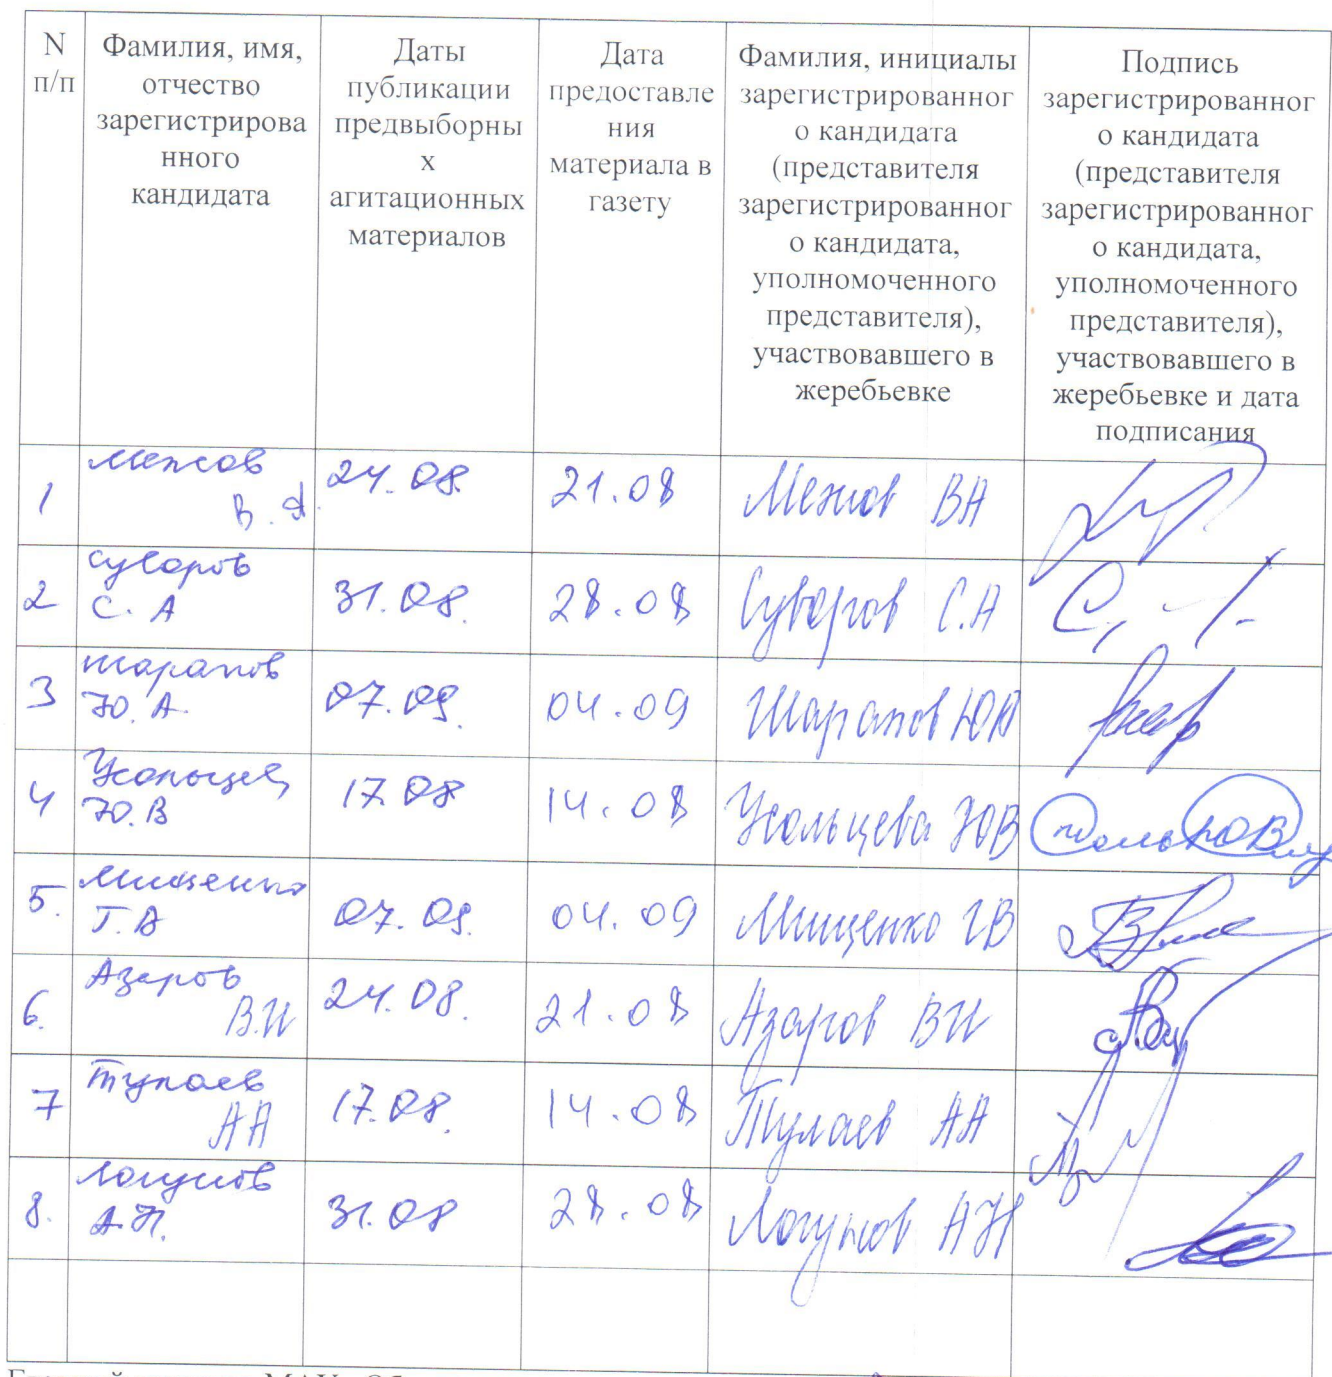 N п/п
Фамилия, имя, отчество зарегистрирова нного кандидата
Даты публикации предвыборны х агитационных материалов
Дата предоставле ния материала в газету
Фамилия, инициалы зарегистрированног о кандидата (представителя зарегистрированног о кандидата, уполномоченного представителя), участвовавшего в жеребьевке
Подпись зарегистрированног о кандидата (представителя зарегистрированног о кандидата, уполномоченного представителя), участвовавшего в жеребьевке и дата подписания
1 Межов В.А 24.08. 21.08 Межов ВА
2 Суворов С.А 31.08. 28.08 Суворов С.А
3 Шарапов Ю.А. 07.09. 04.09 Шарапов ЮА
4 Ю.В 17.08 14.08 Усольцева ЮВ
5. Мищенко Г.В 07.09. 04.09 Мищенко ГВ
6. Азаров В.И 24.08. 21.08 Азаров ВИ
7 Тулаев АА 17.08. 14.08 Тулаев АА
8. Логунов А.Н. 31.08 28.08 Логунов АН